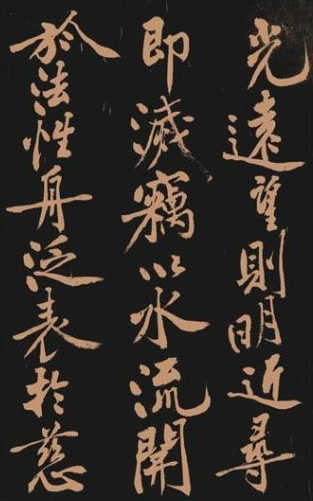 光遠望則明近尋
即滅竊以水流開
於法性舟泛表於慈